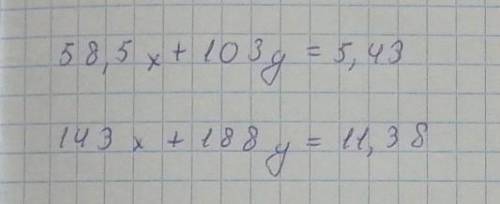 58,5x + 103y = 5,43
143x + 188y = 11,38